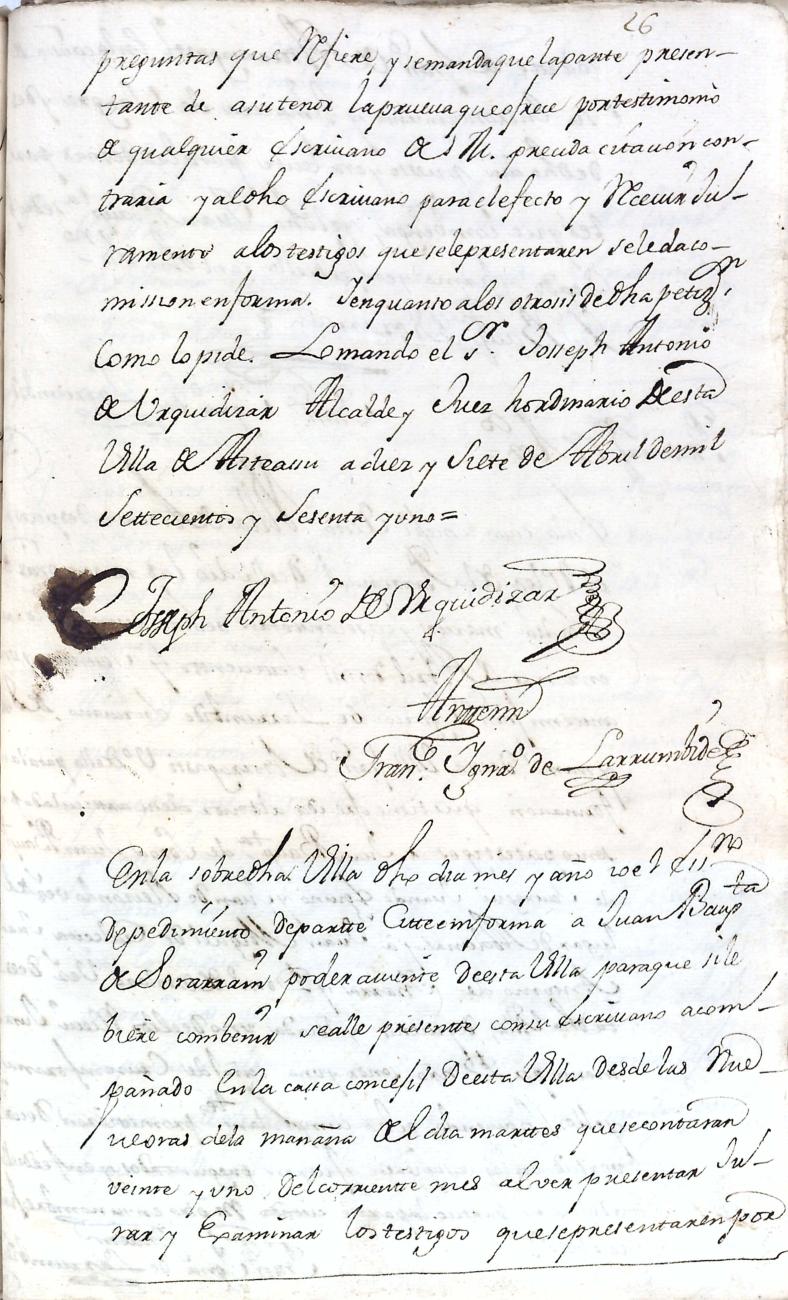 26
preguntas que Refiere, y semanda que laparte presen-
tante de asutenor laprueva queofrece portestimonio
de qualquier escrivano de S M. precida citacion con-
traria y aldho escrivano para el efecto y Recevir Ju-
ramento alostestigos queselepresentaren seledaco-
mission enforma. Y enquanto alos otrosis dedha petizn
Como lopide. Lo mando el Sr. Joseph Antonio
de Urquidizar Alcalde y Juez hordinario de esta
Villa de Asteasu a diez y Siete de Abril demil
Settecientos y Sesenta yuno=
Joseph Antonio de Urquidizar
Antemi
Franco. Ignao de Larrumbide
Enla sobredha Villa dho dia mes y año io el essno
depedimiento departe Cite enforma a Juan Bapta
de Sorarrain poderaviente deesta Villa paraque sile
biere combenir sealle presente consu escrivano acom-
pañado En la cassa concejil deesta Villa desde las Nue-
ve oras dela mañana del dia martes quesecontaran
veinte y uno delcorriente mes alver presentar Ju-
rar y Examinar los testigos quesepresentaren por